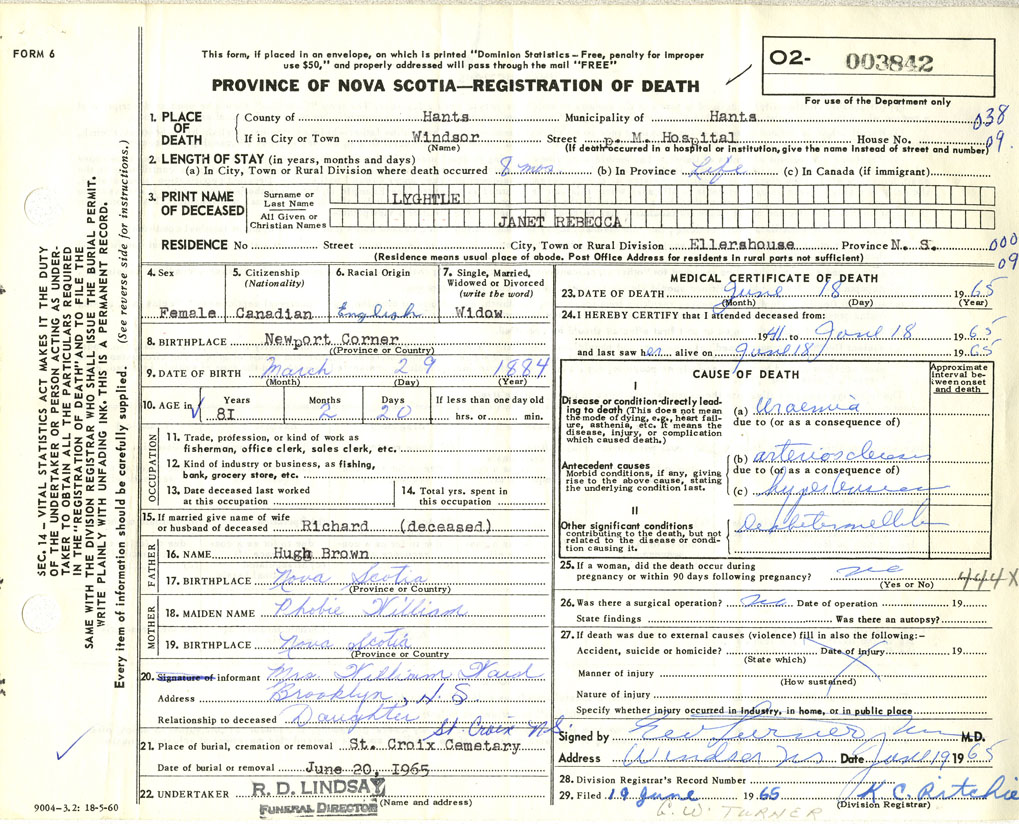 FORM 6
This form, if placed in an envelope, on which is printed "Dominion Statistics – Free, penalty for improper
use $50," and properly addressed will pass through the mail "FREE"
PROVINCE OF NOVA SCOTIA—REGISTRATION OF DEATH
O2- 003842
For use of the Department only
1. PLACE OF DEATH County of Hants Municipality of Hants 038
If in City or Town Windsor Street p. M. Hospital House No. 09.
(Name) (If death occurred in a hospital or institution, give the name instead of street and number)
2. LENGTH OF STAY (in years, months and days)
(a) In City, Town or Rural Division where death occurred 8 mos (b) In Province Life (c) In Canada (if immigrant)
3. PRINT NAME OF DECEASED Surname or Last Name LYGHTLE
All Given or Christian Names JANET REBECCA
RESIDENCE No Street City, Town or Rural Division Ellershouse Province N. S. 000
(Residence means usual place of abode. Post Office Address for residents in rural parts not sufficient) 09
4. Sex Female
5. Citizenship (Nationality) Canadian
6. Racial Origin English
7. Single, Married, Widowed or Divorced (write the word) Widow
8. BIRTHPLACE Newport Corner
(Province or Country)
9. DATE OF BIRTH March 29 1884
(Month) (Day) (Year)
10. AGE in Years 8I Months 2 Days 20 If less than one day old hrs. or min.
OCCUPATION
11. Trade, profession, or kind of work as
fisherman, office clerk, sales clerk, etc.
12. Kind of industry or business, as fishing,
bank, grocery store, etc.
13. Date deceased last worked at this occupation
14. Total yrs. spent in this occupation
15. If married give name of wife
or husband of deceased Richard (deceased)
FATHER
16. NAME Hugh Brown
17. BIRTHPLACE Nova Scotia
(Province or Country)
MOTHER
18. MAIDEN NAME Phobie William
19. BIRTHPLACE Nova Scotia
(Province or Country
20. Signature of informant Mrs William Ward
Address Brooklyn, N.S.
Relationship to deceased Daughter
St Croix NS
21. Place of burial, cremation or removal St. Croix Cemetary
Date of burial or removal June 20, 1965
22. UNDERTAKER R. D. LINDSAY
FUNERAL DIRECTOR (Name and address)
MEDICAL CERTIFICATE OF DEATH
23. DATE OF DEATH June 18 1965
(Month) (Day) (Year)
24. I HEREBY CERTIFY that I attended deceased from:
1941 to June 18 1965
and last saw her alive on June 18 1965
CAUSE OF DEATH
Approximate interval between onset and death
I
Disease or condition directly leading to death (This does not mean the mode of dying, e.g., heart failure, asthenia, etc. It means the disease, injury, or complication which caused death.)
(a) Uraemia
due to (or as a consequence of)
Antecedent causes
Morbid conditions, if any, giving rise to the above cause, stating the underlying condition last.
(b) arteriosclerosis
due to (or as a consequence of)
(c) hypertension
II
Other significant conditions
contributing to the death, but not related to the disease or condition causing it.
25. If a woman, did the death occur during
pregnancy or within 90 days following pregnancy? no
(Yes or No) 444X
26. Was there a surgical operation? no Date of operation 19
State findings Was there an autopsy?
27. If death was due to external causes (violence) fill in also the following:–
Accident, suicide or homicide? Date of injury 19
(State which)
Manner of injury
(How sustained)
Nature of injury
Specify whether injury occurred in Industry, in home, or in public place
Signed by Geo Turner M.D.
Address Windsor NS Date June 19 1965
28. Division Registrar's Record Number
29. Filed 19 June 1965 K C. Ritchie
(Division Registrar)
G. W. TURNER
SEC. 14 – VITAL STATISTICS ACT MAKES IT THE DUTY
OF THE UNDERTAKER OR PERSON ACTING AS UNDER-
TAKER TO OBTAIN ALL THE PARTICULARS REQUIRED
IN THE "REGISTRATION OF DEATH" AND TO FILE THE
SAME WITH THE DIVISION REGISTRAR WHO SHALL ISSUE THE BURIAL PERMIT.
WRITE PLAINLY WITH UNFADING INK. THIS IS A PERMANENT RECORD.
Every item of information should be carefully supplied. (See reverse side for instructions.)
9004–3.2: 18-5-60